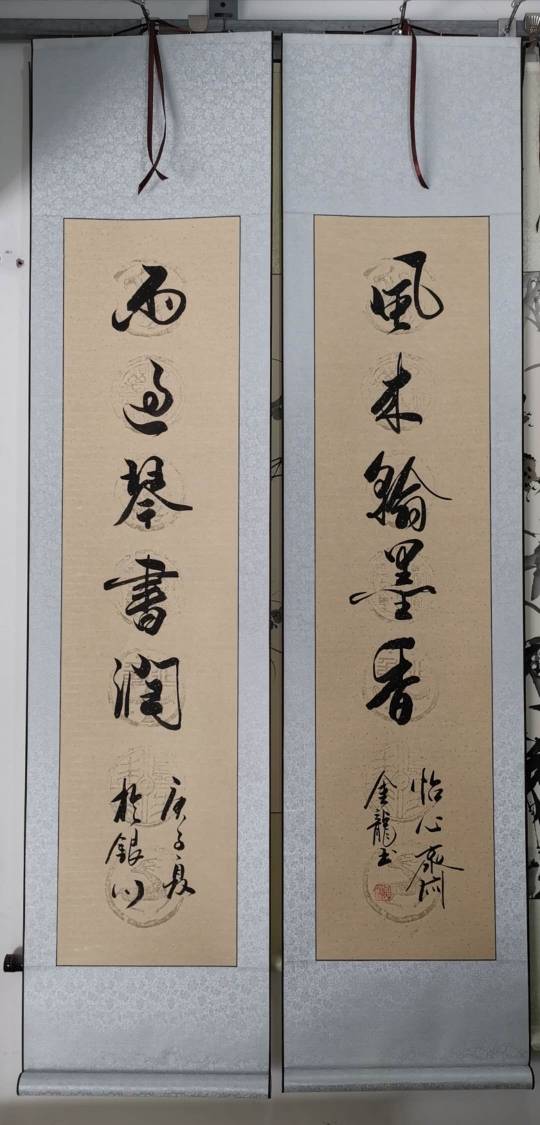 風来翰墨香
怡心齋
金龍书
雨過琴書潤
庚子夏
於銀川